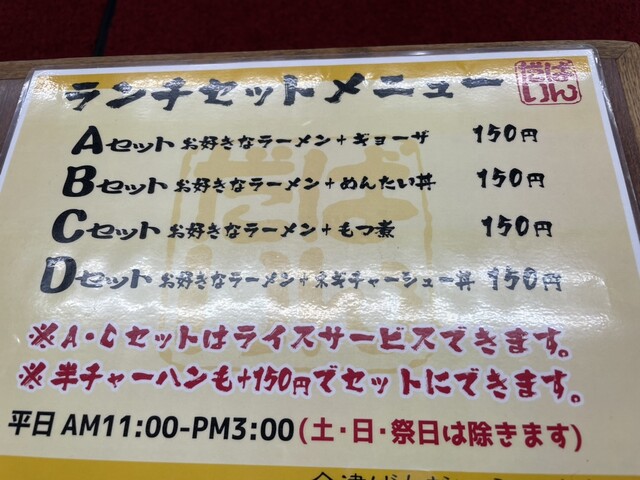 ランチセットメニュー
ばりんだ
Aセット お好きなラーメン+ギョーザ 150円
Bセット お好きなラーメン+めんたい丼 150円
Cセット お好きなラーメン+もつ煮 150円
Dセット お好きなラーメン+ネギチャーシュー丼 150円
※A・Cセットはライスサービスできます。
※半チャーハンも+150円でセットにできます。
平日 AM11:00-PM3:00(土・日・祭日は除きます)